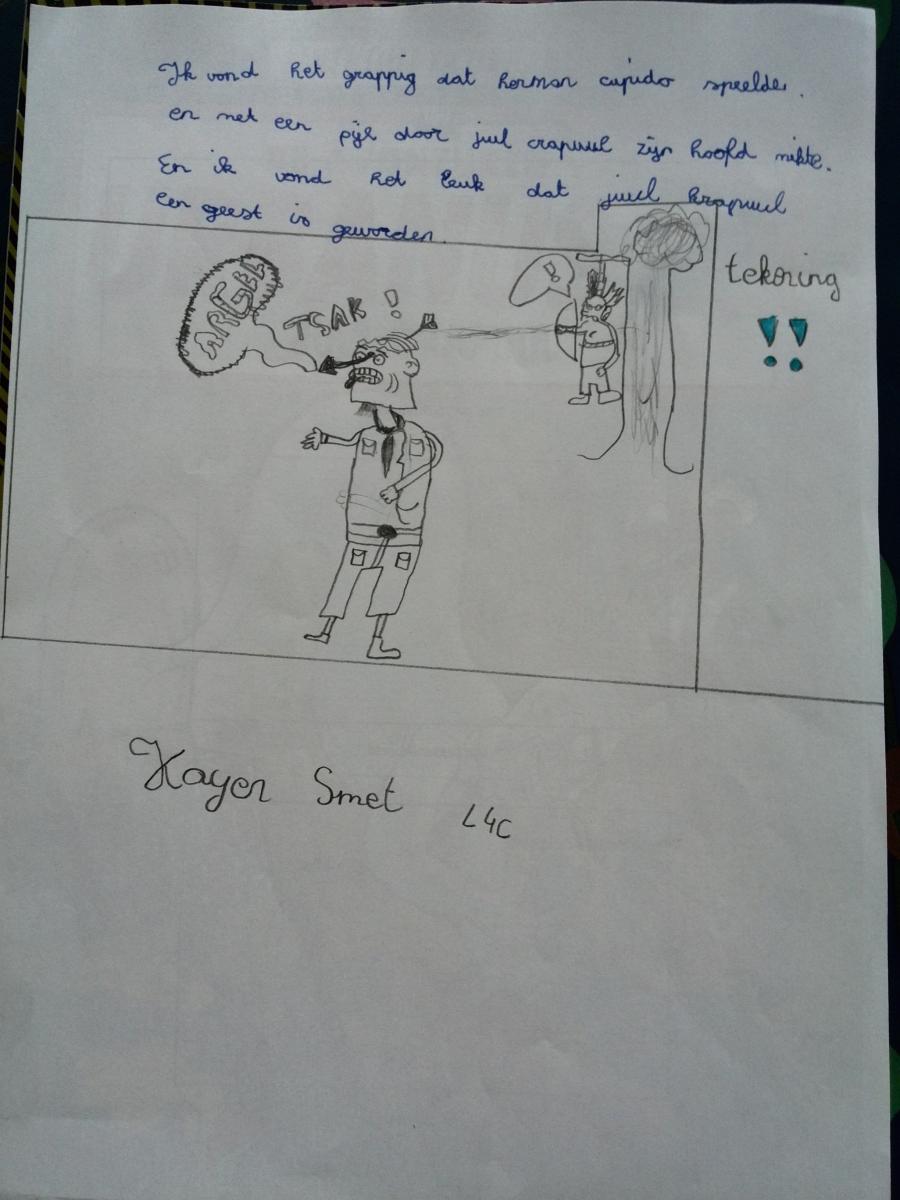 Ik vond het grappig dat herman cupido speelde.
en met een pijl door juul crapuul zijn hoofd mikte.
En ik vond het leuk dat juul krapuul
een geest is geworden.
ARGH
TSAK !
!
tekening
!!
Xayen Smet L4C